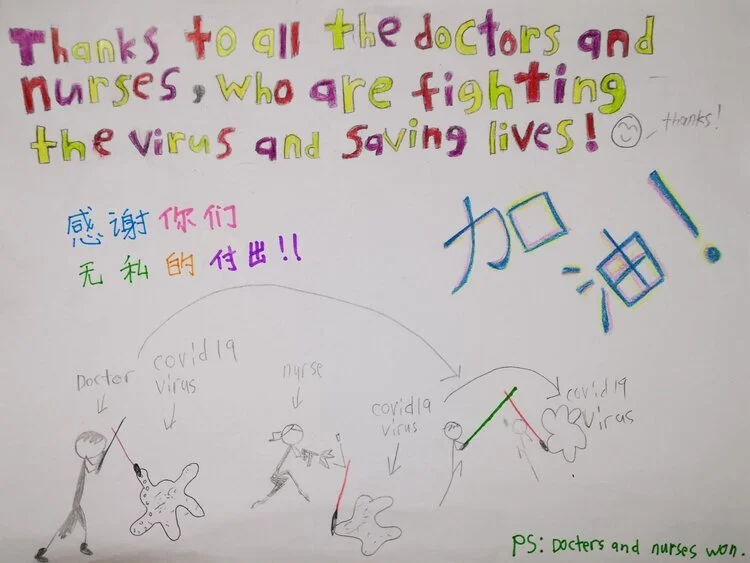 Thanks to all the doctors and
nurses, who are fighting
the virus and saving lives!
thanks!
感谢你们
无私的付出!!
加油!
Doctor
covid19
virus
nurse
covid19
virus
covid19
virus
PS: Docters and nurses won.